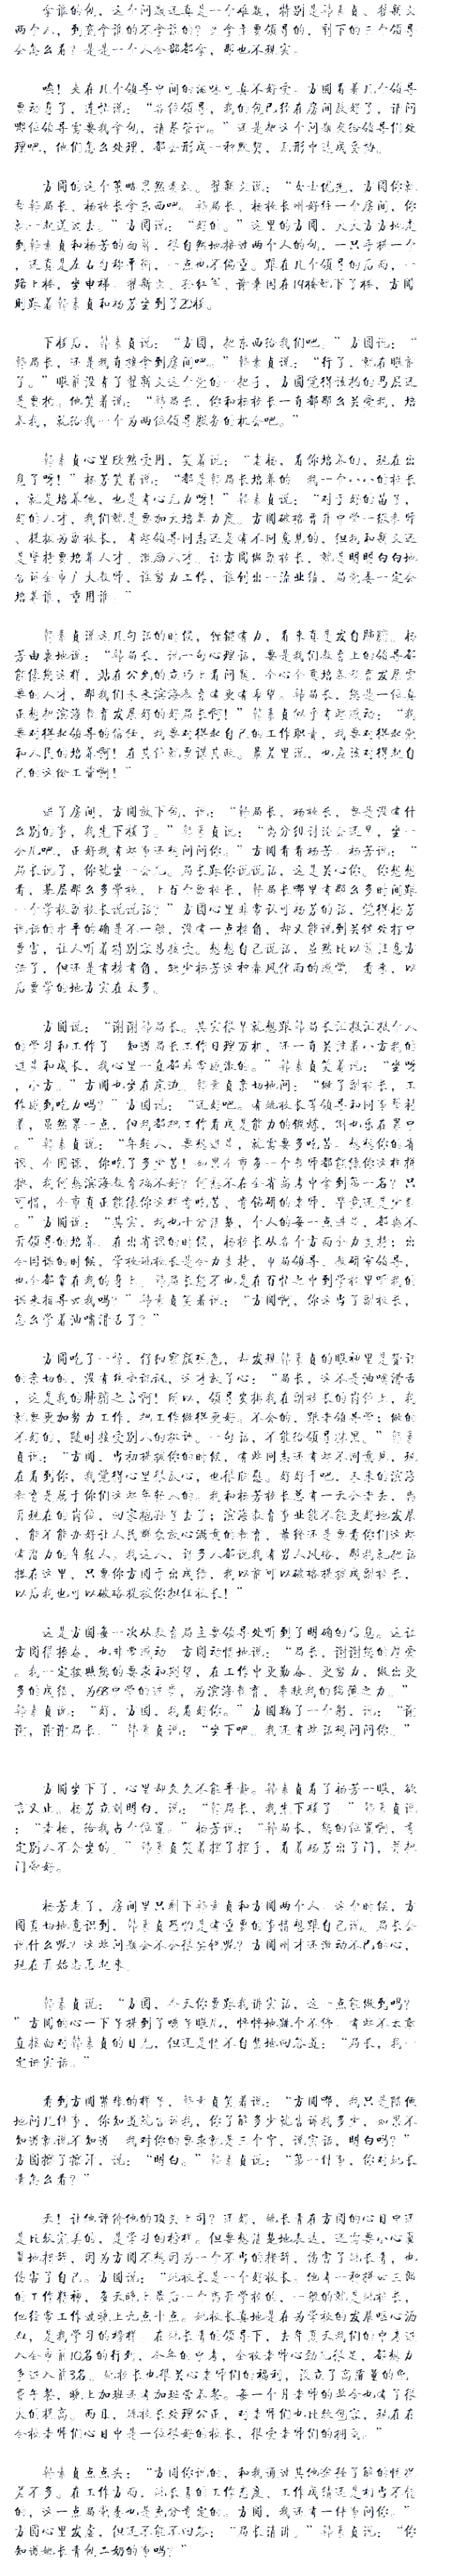 拿谁的包，这个问题还真是一个难题，特别是韩素贞、
两个人，到底拿谁的不拿谁的？
会怎么看？是是一个人全部都拿，那也不现实。
唉！夹在几个领导中间的滋味可真不好受。方圆看着几个领导
要动身了，连忙说：“各位领导，我的包已经在房间放好了，请问
哪位领导需要我拿包，请尽管说。”还是把这个问题交给领导们处
理吧，他们怎么处理，都会形成一种默契，无形中达成妥协。
方圆的这个策略果然奏效。
到韩素贞和杨芳的面前，很自然地接过两个人的包，一只手拎一个
，还真是左右匀称平衡，一点也不偏重。跟在几个领导的后面，一
则跟着韩素贞和杨芳坐到了20楼。
下楼后，韩素贞说：“方圆，把东西给我们吧。”方圆说：“
韩局长，还是我直接拿到房间吧。”韩素贞说：“行了，就在眼前
是要拍。他笑着说：“韩局长，你和杨校长一直都那么关爱我，培
养我，就给我一个为两位领导服务的机会吧。”
韩素贞心里欣然受用，笑着说：“老杨，看你培养的，现在出
息了呀！”杨芳笑着说：“都是韩局长培养的，我一个
，就是培养他，也是有心无力呀！”韩素贞说：“对于好的苗子，
好的人才，我们就是要加大培养力度。方圆破格晋升中学一级教师
、提拔为副校长，有些领导同志还是有不同意见的，但我和
是坚持要培养人才、激励人才。让方圆做副校长，就是明明白白地
告诉全市广大教师，谁努力工作，谁创出一流业绩，局党委一定会
培养谁，重用谁。”
韩素贞说这几句话的时候，铿锵有力，看来真是发自肺腑。杨
芳由衷地说：“韩局长，说一句心理话，要是我们教育上的领导都
能像您这样，站在公允的立场上看问题，全心全意培养教育发展需
要的人才，那我们未来滨海教育谁更有希望。韩局长，您是一位真
正想把滨海教育发展好的好局长啊！”韩素贞似乎有些感动：“我
要对得起领导的信任，我要对得起自己的工作职责，我要对得起党
和人民的培养啊！在其位就要谋其政。最差里说，也应该对得起自
己的这份工资啊！”
进了房间，方圆放下包，说：“韩局长，杨校长，要是没有什
么别的事，我先下楼了。”韩素贞说：“离分组讨论会还早，坐一
会儿吧，正好我有些事还想问问你。”方圆看看杨芳。杨芳说：“
局长说了，你就坐一会儿。局长跟你说说话，这是关心你。你想想
看，基层那么多学校，上百个副校长，韩局长哪里有那么多时间跟
一个学校副校长说说话？”方圆心里非常认可杨芳的话，觉得杨芳
说话的水平的确是不一般，没有一点棱角，却又能说到关键处打中
要害，让人听着特别容易接受。想想自己说话，虽然比以前注意方
法了，但还是有棱有角，缺少杨芳这种春风化雨的感觉。看来，以
后要学的地方实在太多。
方圆说：“谢谢韩局长。其实很早就想跟韩局长汇报汇报个人
的学习和工作了，知道局长工作日理万机，还一直关注着八方我的
进步和成长，我心里一直都非常感激的。”韩素贞笑着说：“坐呀
，小方。”方圆也坐在床边。韩素贞亲切地问：“做了副校长，工
作感到吃力吗？”方圆说：“还好吧。有姚校长等领导和同事帮衬
着，虽然累一点，但我都把工作看成是能力的锻炼，倒也乐在其中
。”韩素贞说：“年轻人，要想进步，就需要多吃苦。想想你的省
课、全国课，你吃了多少苦！如果全市多一个老师都能像你这样拼
搏，我何愁滨海教育搞不好？何愁不在全省高考中拿到第一名？只
可惜，全市真正能像你这样肯吃苦、肯钻研的老师，毕竟还是少数
。”方圆说：“其实，我也十分清楚，个人的每一点进步，都离不
开领导的培养。在出省课的时候，杨校长从各个方面全力支持；出
全国课的时候，学校姚校长是全力支持，市局领导、教研室领导，
也全都看在我的身上。韩局长您不也是在百忙之中到学校里听我的
课来指导过我吗？”韩素贞笑着说：“方圆啊，你这当了副校长，
怎么学着油嘴滑舌了？”
方圆吃了一惊，仔细察颜观色，却发现韩素贞的眼神里是赞许
的亲切的，没有丝毫讥讽，这才放了心：“局长，这不是油嘴滑舌
，这是我的肺腑之言啊！所以，领导安排我在副校长的岗位上，我
就要更加努力工作，把工作做得更好。不会的，跟着领导学；做的
不好的，随时接受别人的批评。一句话，不能给领导抹黑。”韩素
贞说：“方圆，当初提拔你的时候，有些同志还有些不同意见，现
在看到你，我觉得心里很放心，也很欣慰。好好干吧，未来的滨海
教育是属于你们这些年轻人的。我和杨芳校长总有一天会老去，离
开现在的岗位，回家抱孙子去了；滨海教育事业能不能更好地发展
，能不能办好让人民群众放心满意的教育，最终还是要看你们这些
有潜力的年轻人。我这人，许多人都说我有男人风格，那我就把话
撂在这里，只要你方圆干出成绩，我以前可以破格提拔成副校长，
以后我也可以破格提拔你担任校长！”
这是方圆第一次从教育局主要领导处听到了明确的信息。这让
方圆很振奋，也非常感动。方圆动情地说：“局长，谢谢您的厚爱
。我一定按照您的要求和期望，在工作中更勤奋、更努力，做出更
多的成绩，为68中学的进步，为滨海教育，奉献我的绵薄之力。”
韩素贞说：“好，方圆，我看好你。”方圆鞠了一个躬，说：“谢
谢，谢谢局长。”韩素贞说：“坐下吧。我还有些话想问问你。”
方圆坐下了，心里却久久不能平静。韩素贞看了杨芳一眼，欲
言又止。杨芳立刻明白，说：“韩局长，我先下楼了。”韩素贞说
：“老杨，给我占个位置。”杨芳说：“韩局长，您的位置啊，肯
定别人不会坐的。”韩素贞笑着摆了摆手，看着杨芳出了门，并把
门带好。
杨芳走了，房间里只剩下韩素贞和方圆两个人。这个时候，方
圆真切地意识到，韩素贞恐怕是有重要的事情想跟自己说。局长会
说什么呢？这些问题会不会很尖锐呢？方圆刚才还激动不已的心，
现在开始忐忑起来。
韩素贞说：“方圆，今天你要跟我讲实话，这一点能做到吗？
”方圆的心一下子提到了嗓子眼儿，怦怦地跳个不停，有些不太敢
直接面对韩素贞的目光，但还是忙不自禁地回答道：“局长，我一
定讲实话。”
看到方圆紧张的样子，韩素贞笑着说：“方圆哪，我只是随便
地问几件事，你知道就告诉我，你了解多少就告诉我多少，如果不
知道就说不知道。我对你的要求就是三个字，说实话，明白吗？”
方圆擦了擦汗，说：“明白。”韩素贞说：“第一件事，你对姚长
青怎么看？”
天！让他评价他的顶头上司？还好，姚长青在方圆的心目中还
是比较完美的，是学习的榜样。但要想清楚地表达，还需要小心翼
翼地措辞，因为方圆不想因为一个不当的措辞，伤害了姚长青，也
伤害了自己。方圆说：“姚校长是一个好校长。他有一种拼命三郎
的工作精神，每天晚上最后一个离开学校的，一般的就是姚校长，
他经常工作到晚上九点十点。姚校长真地是在为学校的发展呕心沥
血，是我学习的榜样。在姚长青的领导下，去年夏天我们的中考进
入全市前10名的行列，今年的中考，全校老师心劲儿很足，都想力
争进入前3名。姚校长也很关心老师们的福利，设立了高质量的免
费午餐，晚上加班还有加班营养餐。每一个月老师的奖金也有了很
大的提高。而且，姚校长处理公正，对老师们也比较包容，现在在
全校老师们心目中是一位很好的校长，很受老师们的拥戴。”
韩素贞点点头：“方圆你说的，和我通过其他途径了解的情况
差不多。在工作方面，姚长青的工作态度、工作成绩还是相当不错
的，这一点局党委也是充分肯定的。方圆，我还有一件事问你。”
方圆心里发虚，但还不能不回答：“局长请讲。”韩素贞说：“你
知道姚长青包二奶的事吗？”